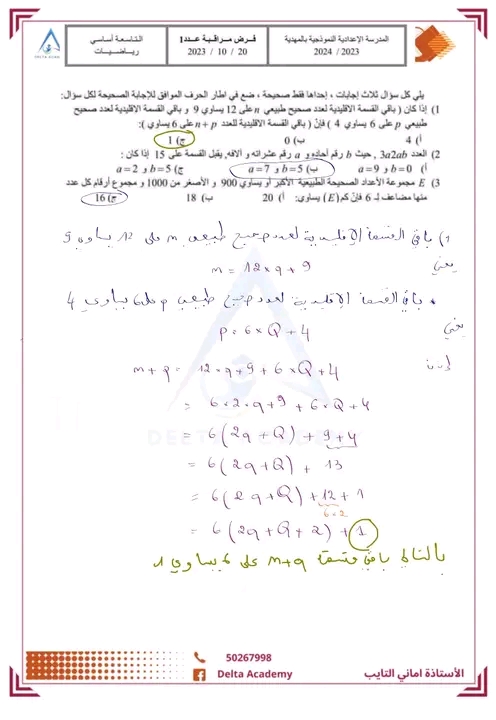 DELTA ACADEMY
التاسعة أساسي
ريـاضيـات
فـرض مـراقبـة عـدد1
2023 / 10 / 20
المدرسة الإعدادية النموذجية بالمهدية
2024 / 2023
يلي كل سؤال ثلاث إجابات ، إحداها فقط صحيحة ، ضع في اطار الحرف الموافق للإجابة الصحيحة لكل سؤال:
1) إذا كان ( باقي القسمة الاقليدية لعدد صحيح طبيعي n على 12 يساوي 9 و باقي القسمة الاقليدية لعدد صحيح
طبيعي p على 6 يساوي 4 ) فإنّ ( باقي القسمة الاقليدية للعدد n+p على 6 يساوي ):
أ) 4 ب) 0 ج) 1
2) العدد 3a2ab , حيث b رقم آحاده و a رقم عشراته و آلافه, يقبل القسمة على 15 إذا كان :
أ) b=0 و a=9 ب) b=5 و a=7 ج) b=5 و a=2
3) E مجموعة الأعداد الصحيحة الطبيعية الأكبر أو يساوي 900 و الأصغر من 1000 و مجموع أرقام كل عدد
منها مضاعف لـ 6 فإن كم(E) يساوي: أ) 20 ب) 18 ج) 16
1) باقي القسمة الإقليدية لعدد صحيح طبيعي m على 12 يساوي 9
يعني
m = 12×q+9
• باقي القسمة الإقليدية لعدد صحيح طبيعي p على 6 يساوي 4
يعني
p = 6×Q+4
إذن
m+p = 12×q+9+6×Q+4
= 6×2×q+9+6×Q+4
= 6(2q+Q)+9+4
= 6(2q+Q)+13
= 6(2q+Q)+12+1
6×2
= 6(2q+Q+2)+1
بالتالي باقي قسمة m+q على 6 يساوي 1
DELTA ACADEMY
50267998
Delta Academy
الأستاذة اماني التايب